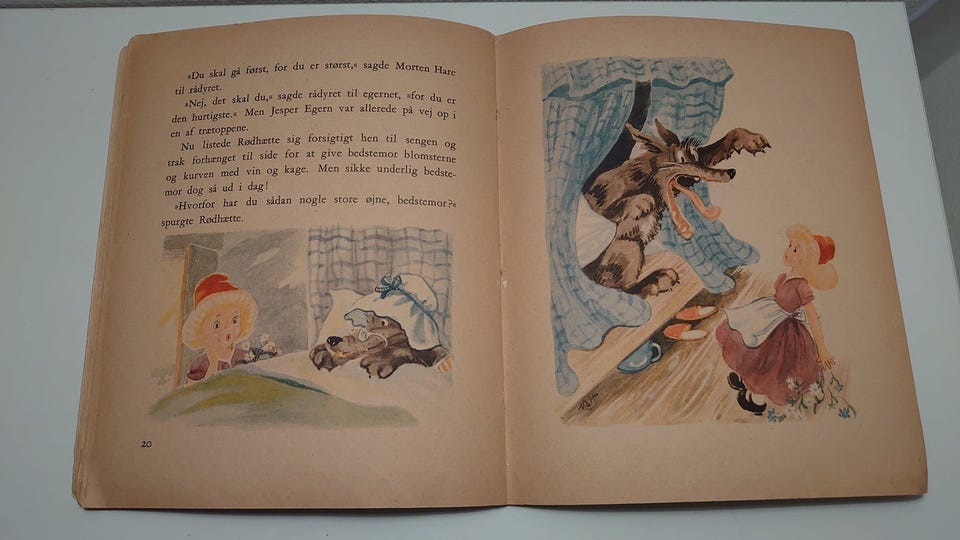 »Du skal gå først, for du er størst,« sagde Morten Hare
til rådyret.
»Nej, det skal du,« sagde rådyret til egernet, »for du er
den hurtigste.« Men Jesper Egern var allerede på vej op i
en af trætoppene.
Nu listede Rødhætte sig forsigtigt hen til sengen og
trak forhænget til side for at give bedstemor blomsterne
og kurven med vin og kage. Men sikke underlig bedste-
mor dog så ud i dag!
»Hvorfor har du sådan nogle store øjne, bedstemor?«
spurgte Rødhætte.
20